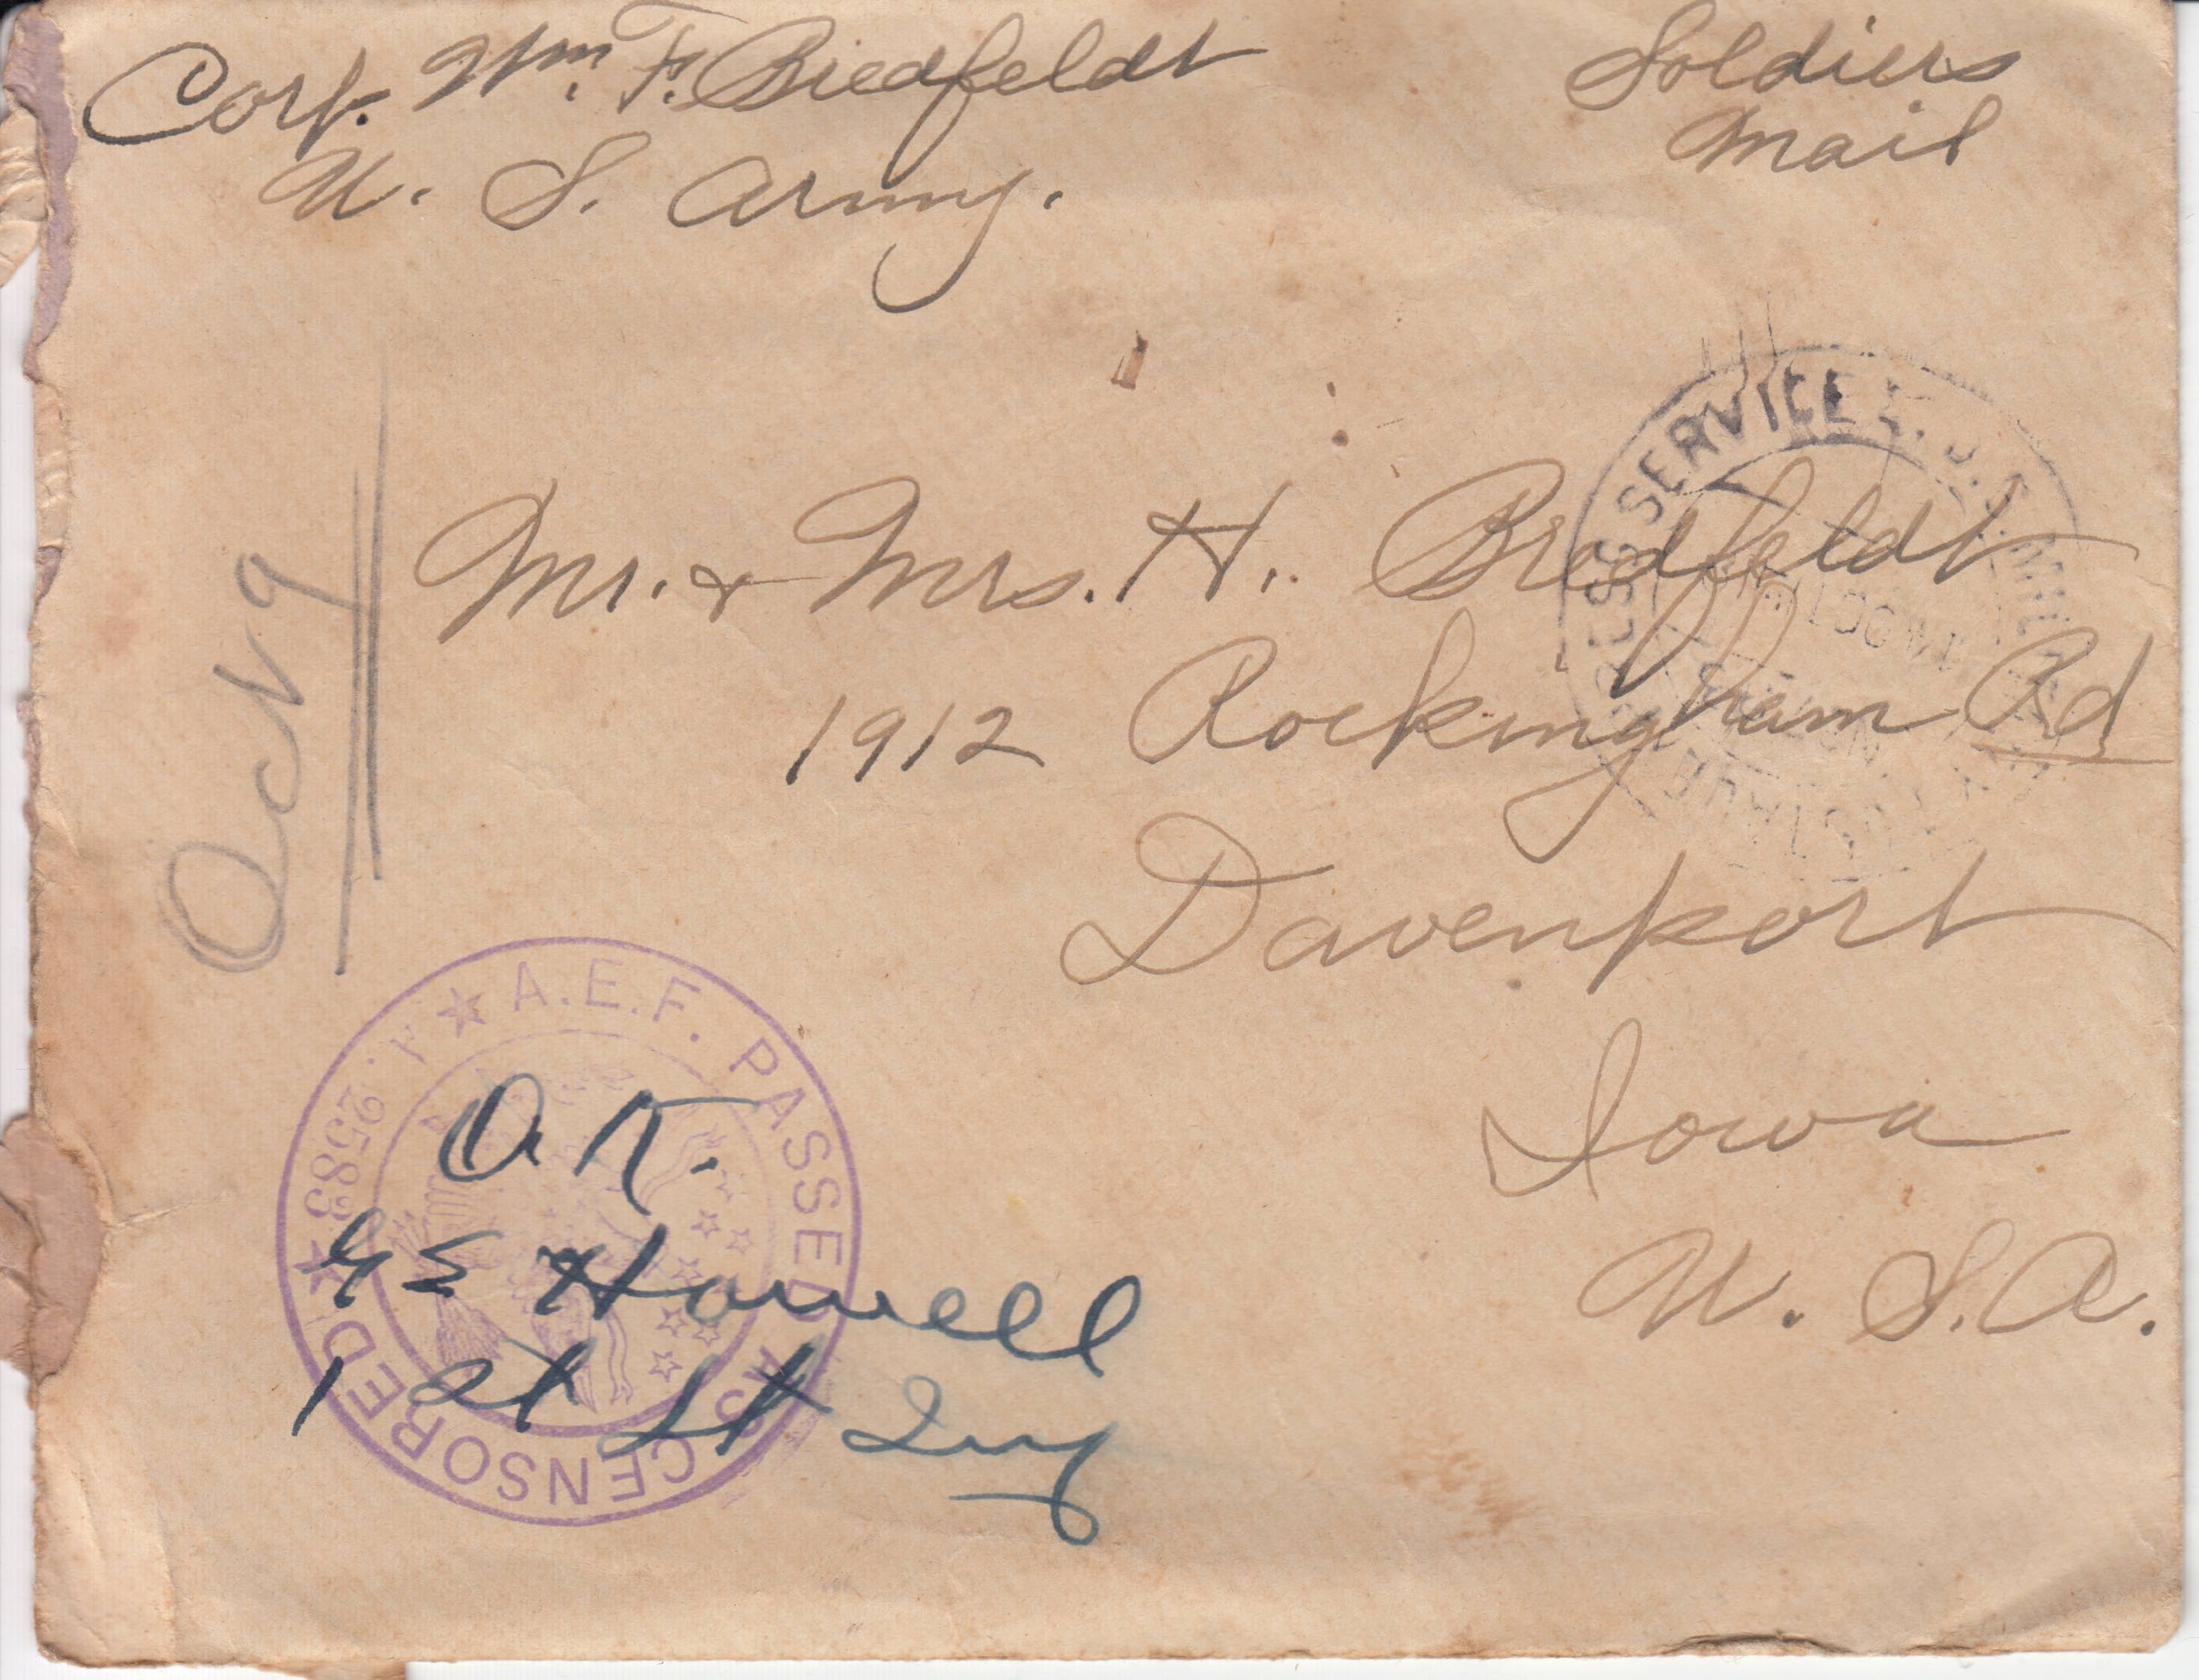 Corp. Wm. F. Bredfeldt
U. S. Army.
Soldiers
Mail
SERVICE
Mr. & Mrs. H. Bredfeldt
1912 Rockingham Rd
Davenport
Iowa
U. S. A.
A.E.F. PASSED AS CENSORED
O.K.
G E Howell
1st Lt Inf